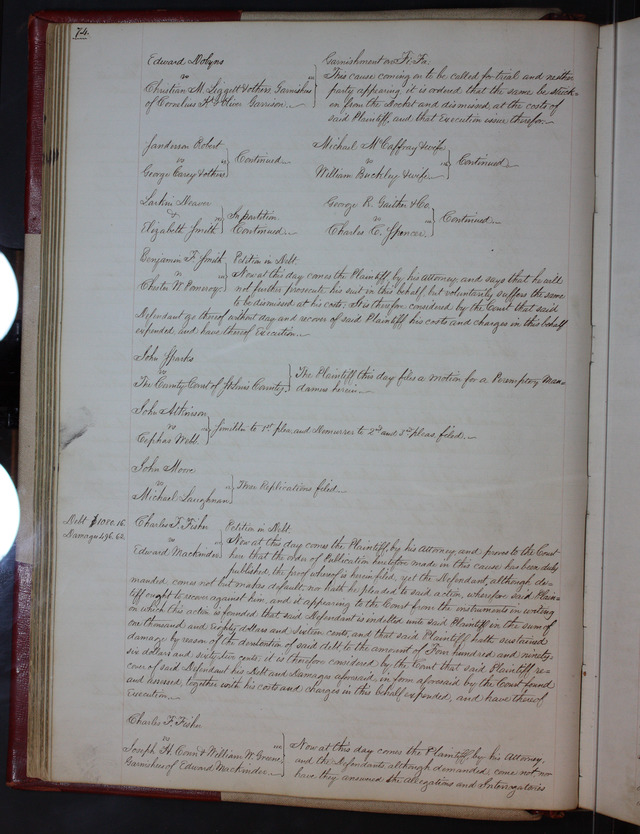 74.
Edward Dobyns
vs
Christian M. Liggett & others Garnishees
of Cornelius K. & Oliver Garrison.
Garnishment on Fi. Fa.
This cause coming on to be called for trial and neither
party appearing it is ordered that the same be strick=
en from the Docket and dismissed, at the costs of
said Plaintiff, and that Execution issue therefor.
Janderson Robert
vs
George Carey & others
Continued
Michael McCaffray & wife
vs
William Buckley & wife
Continued
Larkin Deaver
&
Elizabeth Smith
In partition
Continued
George R. Gaither & Co.
vs
Charles C. Spencer
Continued
Benjamin F. Smith
vs
Chester W. Pomroy
Petition in Debt.
Now at this day comes the Plaintiff, by his Attorney, and says that he will
not further prosecute his suit in this behalf, but voluntarily suffers the same
to be dismissed at his costs. It is therefore considered by the Court that said
Defendant go thereof without day and recover of said Plaintiff his costs and charges in this behalf
expended, and have thereof Execution.
John Sparks
vs
The County Court of St. Louis County
The Plaintiff this day files a motion for a Peremptory Man=
damus herein.
John Atkinson
vs
Cephas Webb.
Similiter to 1st plea, and Demurrer to 2nd and 3d pleas filed.
John Moore
vs
Michael Laughnan
Three Replications filed.
Debt $1080.16
Damages 496.62.
Charles F. Fishn
vs
Edward Mackinder
Petition in Debt.
Now at this day comes the Plaintiff, by his Attorney, and proves to the Court
here that the order of Publication heretofore made in this cause has been duly
published, the proof whereof is herein filed, yet the Defendant, although de=
manded comes not but makes default, nor hath he pleaded to said action, wherefore said Plain=
tiff ought to recover against him, and it appearing to the Court from the instruments in writing
on which this action is founded that said Defendant is indebted unto said Plaintiff in the sum of
one thousand and Eighty dollars and Sixteen cents, and that said Plaintiff hath sustained
damage by reason of the detention of said debt to the amount of Four hundred and ninety
six dollars and sixty two cents, it is therefore considered by the Court that said Plaintiff re=
cover of said Defendant his Debt and Damages aforesaid, in form aforesaid by the Court found
and assessed, together with his costs and charges in this behalf expended, and have thereof
Execution.
Charles F. Fishn
vs
Joseph H. Conn & William W. Greene
Garnishees of Edward Mackinder.
Now at this day comes the Plaintiff, by his Attorney,
and the Defendants although demanded come not, nor
have they answered the Allegations and Interrogatories